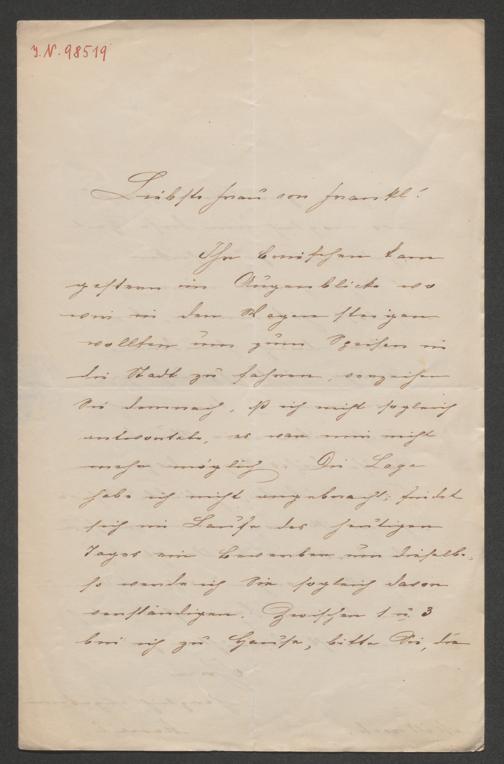 I.N. 98519
Liebste Frau von Frankl!
Ihr Briefchen kam
gestern im Augenblicke wo
wir in den Wagen steigen
wollten um zum Speisen in
die Stadt zu fahren, verzeihen
Sie demnach, dß ich nicht sogleich
antwortete, es war mir nicht
mehr möglich. Die Loge
habe ich nicht angebracht; findet
sich im Laufe des heutigen
Tages ein Bewerber um dieselbe,
so werde ich Sie sogleich davon
verständigen. Zwischen 1 u 3
bin ich zu Hause, bitte Sie, die